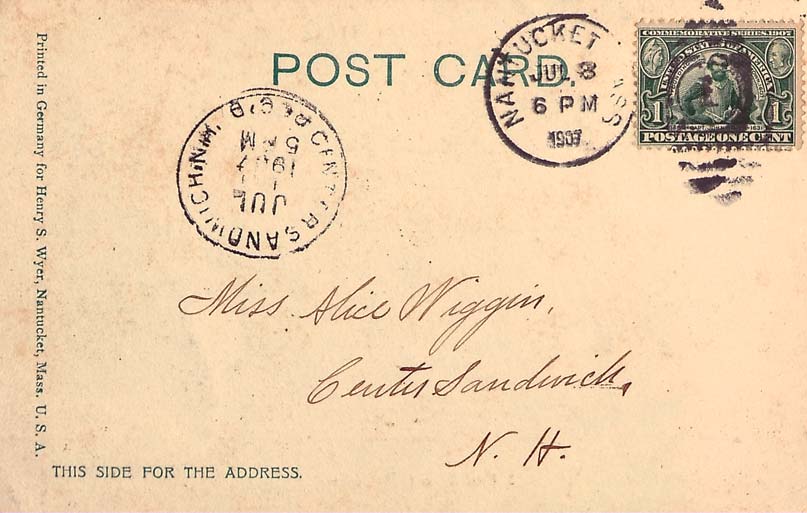 POST CARD.
NANTUCKET MASS
JUL 8
6 PM
1907
COMMEMORATIVE SERIES 1907
UNITED STATES OF AMERICA
1 1
POSTAGE ONE CENT
CENTER SANDWICH, N.H. REC'D
5 PM
1907
JUL
Miss Alice Wiggin,
Center Sandwich,
N. H.
THIS SIDE FOR THE ADDRESS.
Printed in Germany for Henry S. Wyer, Nantucket, Mass. U. S. A.